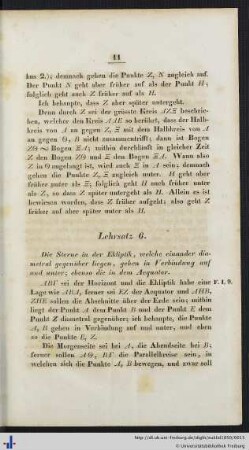 11
kus 2.); demnach gehen die Punkte Z, N zugleich auf.
Der Punkt N geht aber früher auf als der Punkt H;
folglich geht auch Z früher auf als H.
Ich behaupte, dass Z aber später untergeht.
Denn durch Z sei der grösste Kreis beschrie-
ben, welcher den Kreis so berührt, dass der Halb-
kreis von A an gegen Z, Ξ mit dem Halbkreis von A
an gegen nicht zusammentrifft; dann ist Bogen
ZΘ ∾ Bogen ΞA; mithin durchläuft in gleicher Zeit
Z den Bogen ZΘ und Ξ den Bogen ΞA. Wann also
Z in Θ angelangt ist, wird auch Ξ in A sein; demnach
gehen die Punkte Z, Ξ zugleich unter. H geht aber
früher unter als Ξ, folglich geht H auch früher unter
als Z, so dass Z später untergeht als H. Allein es ist
bewiesen worden, dass Z früher aufgeht; also geht Z
früher auf aber später unter als H.
Lehrsatz 6.
Die Sterne in der Ekliptik, welche einander dia-
metral gegenüber liegen, gehen in Verbindung auf
und unter; ebenso die in dem Aequator.
ABΓ sei der Horizont und die Ekliptik habe eine F. I, 9.
Lage wie ferner sei EZ der Aequator und AHB,
ZHE sollen die Abschnitte über der Erde sein; mithin
liegt der Punkt A dem Punkt B und der Punkt E dem
Punkt Z diametral gegenüber; ich behaupte, die Punkte
A, B gehen in Verbindung auf und unter, und eben
so die Punkte E, Z.
Die Morgenseite sei bei A, die Abendseite bei B;
ferner sollen AΘ, die Parallelkreise sein, in
welchen sich die Punkte A, B bewegen, und zwar soll
http://dl.ub.uni-freiburg.de/diglit/
© Universitätsbibliothek Freiburg